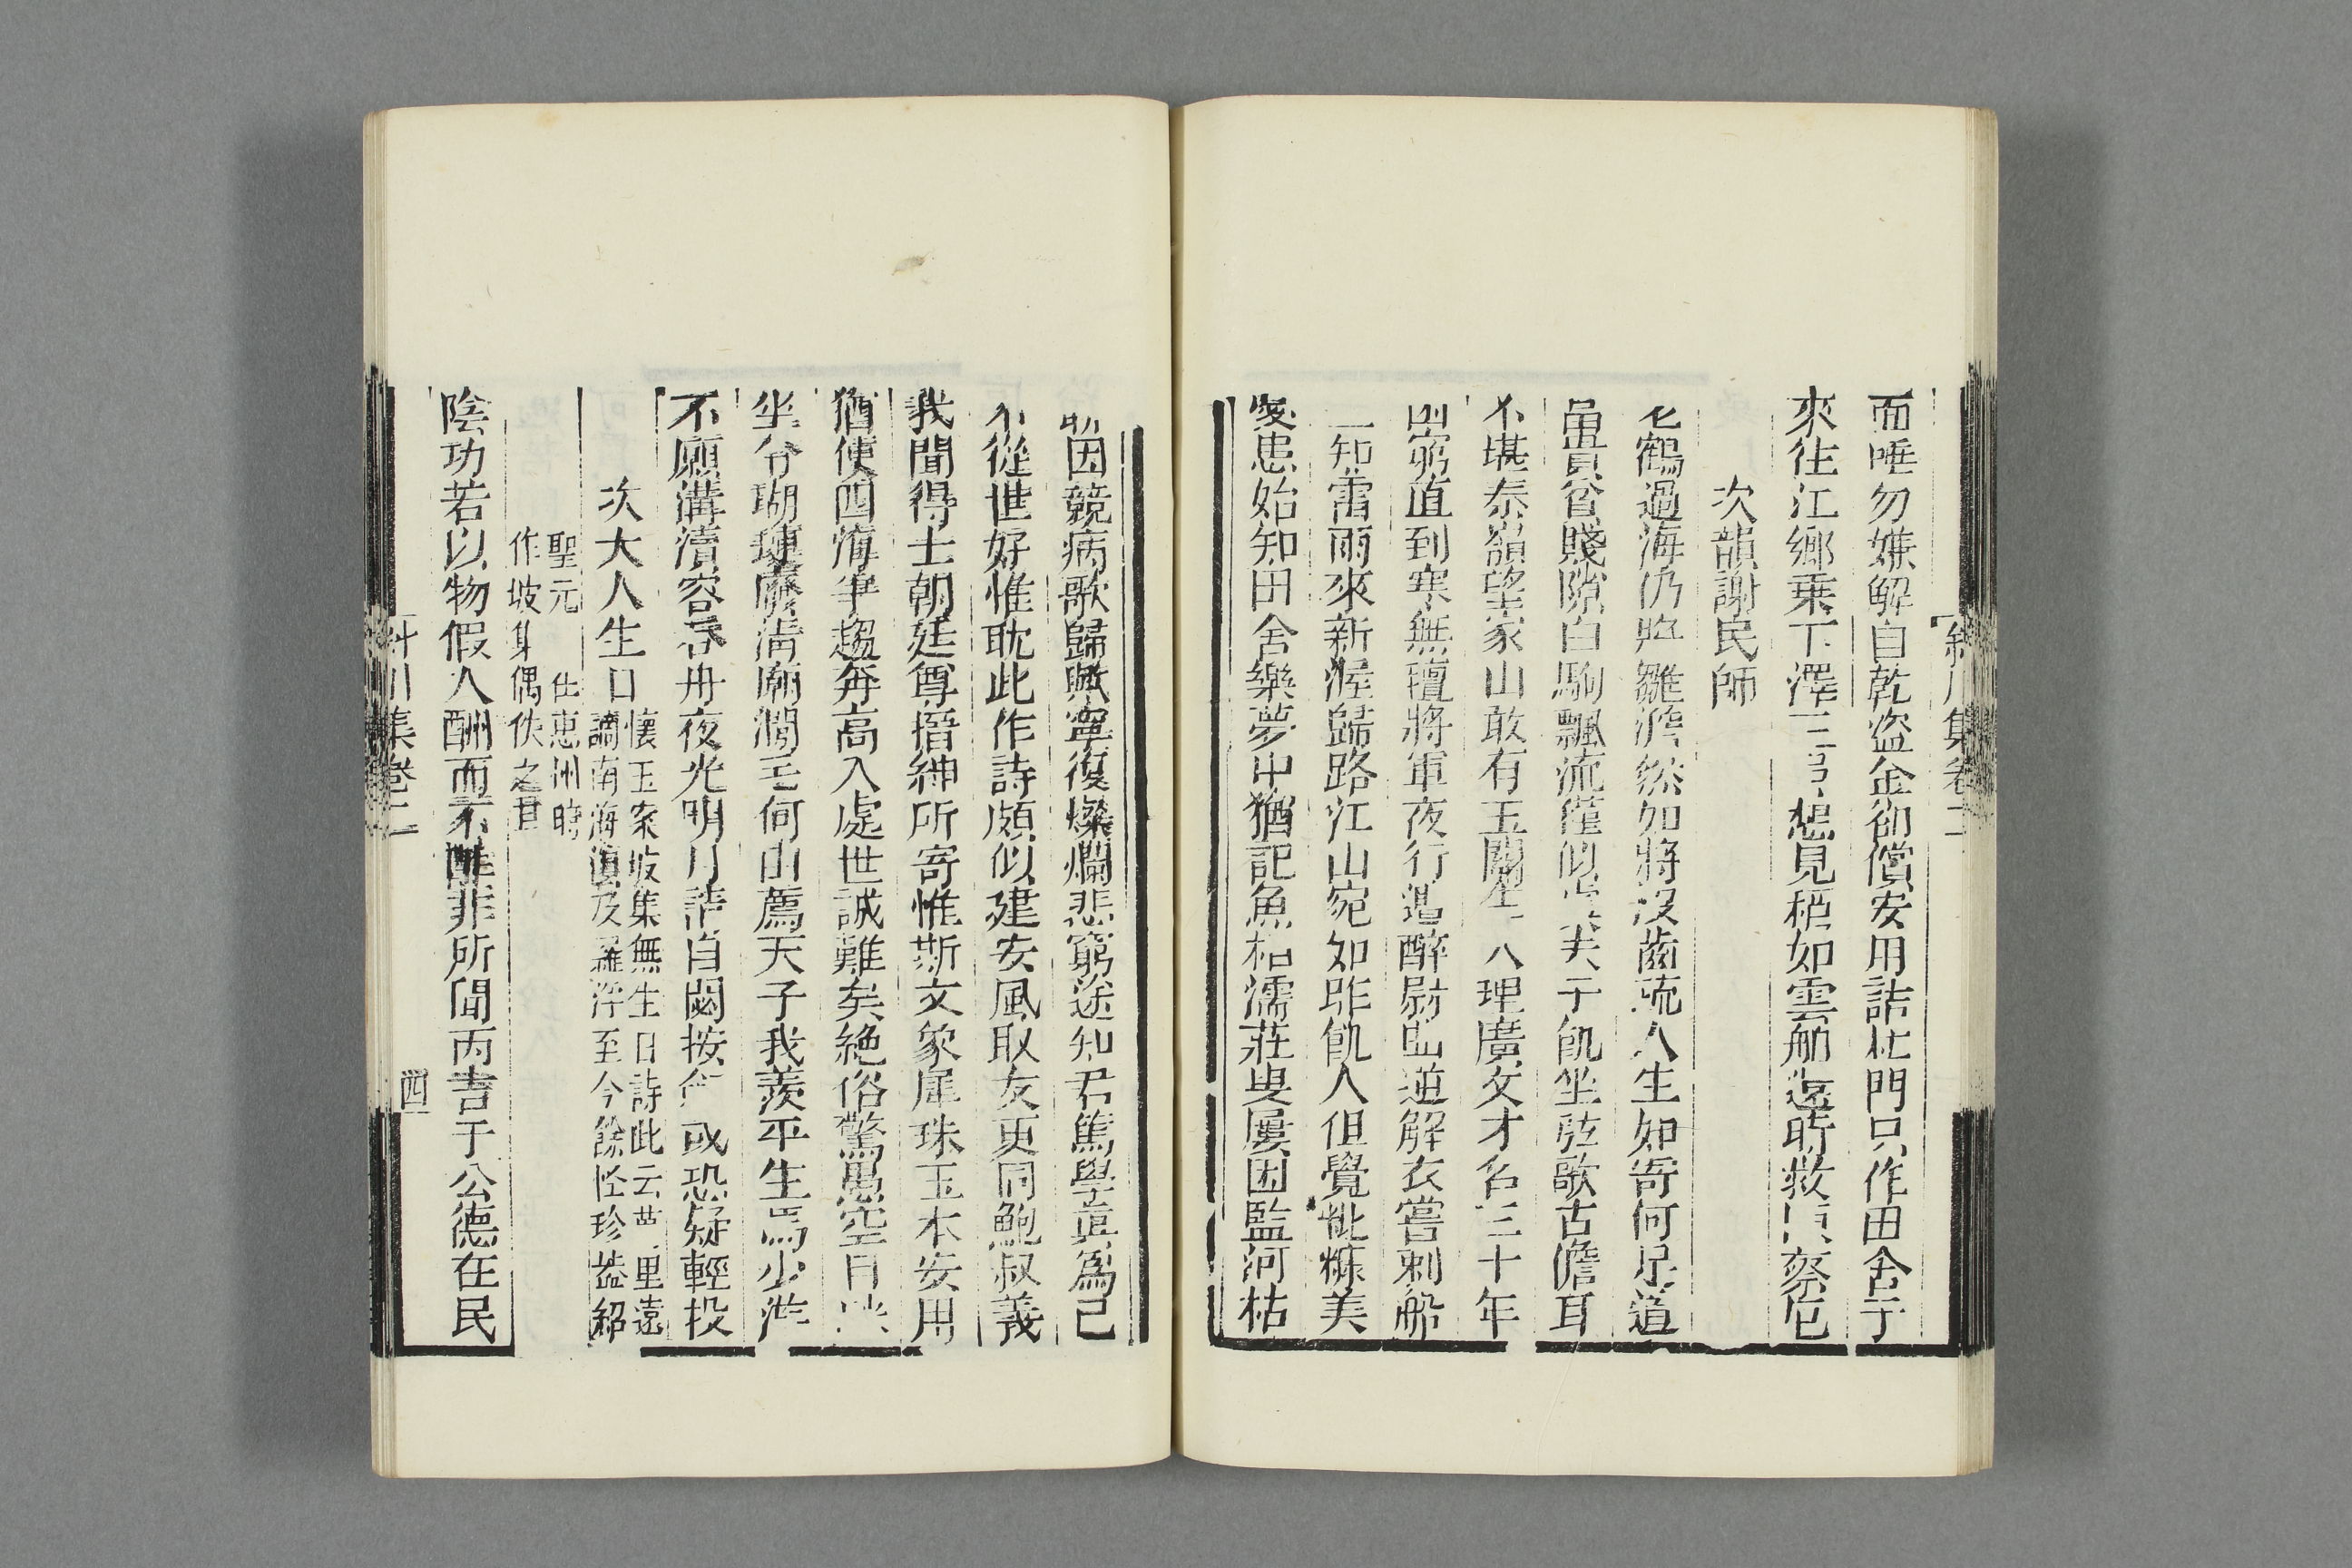 而唾勿嫌解自乾盜金卻償安用詰杜門只作田舍于
來往江鄉乗下澤三 想見稻如雲舶遠時救 察戹
次韻謝民師
鶴過海仍 雛 然如將没齒疏人生如寄何足道
貴 賤隙白駒飄流 似 夫子飢坐弦歌古儋耳
不堪泰嶺望家山敢有玉關生 入理廣文才名三十年
窮直到寒無氊將軍夜行遭醉尉 逆解衣嘗刺船
知雷雨來新渥歸路江山宛如昨飢人但覺粃糠美
憂患始知田舍樂夢中猶記魚相濡莊叟屢困監河枯
因競病歌歸賦寧復燦爛悲窮途知君篤學眞爲己
不從世好惟耽此作詩頗似建安風取友更同鮑叔義
我聞得士朝廷尊搢紳所寄惟斯文象犀珠玉本安用
猶使四海爭趨奔高入處世誠難矣絶俗驚愚空日
坐令瑚璉廢清廟澗毛何由薦天子我羨平生馬少游
不願溝瀆容吞舟夜光明月請自閟按劍或恐疑輕投
次大人生日懷玉案坡集無生日詩此云 里遠
謫南海眞及羅浮至今餘怪珍葢紹
聖元 仕惠洲時
作坡集偶佚之耳
陰功若以物假人酬而不酢非所聞丙吉于公德在民
斜川集卷二
四